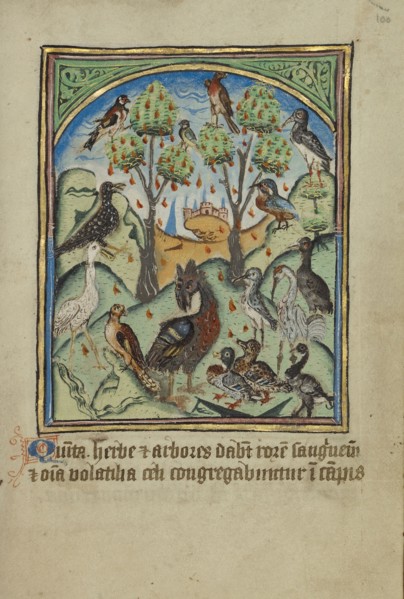 100
Quinta. herbe ⁊ arbores dabt rorē sanguem
⁊ oīa volatilia celi congregabūntur ī cāpis